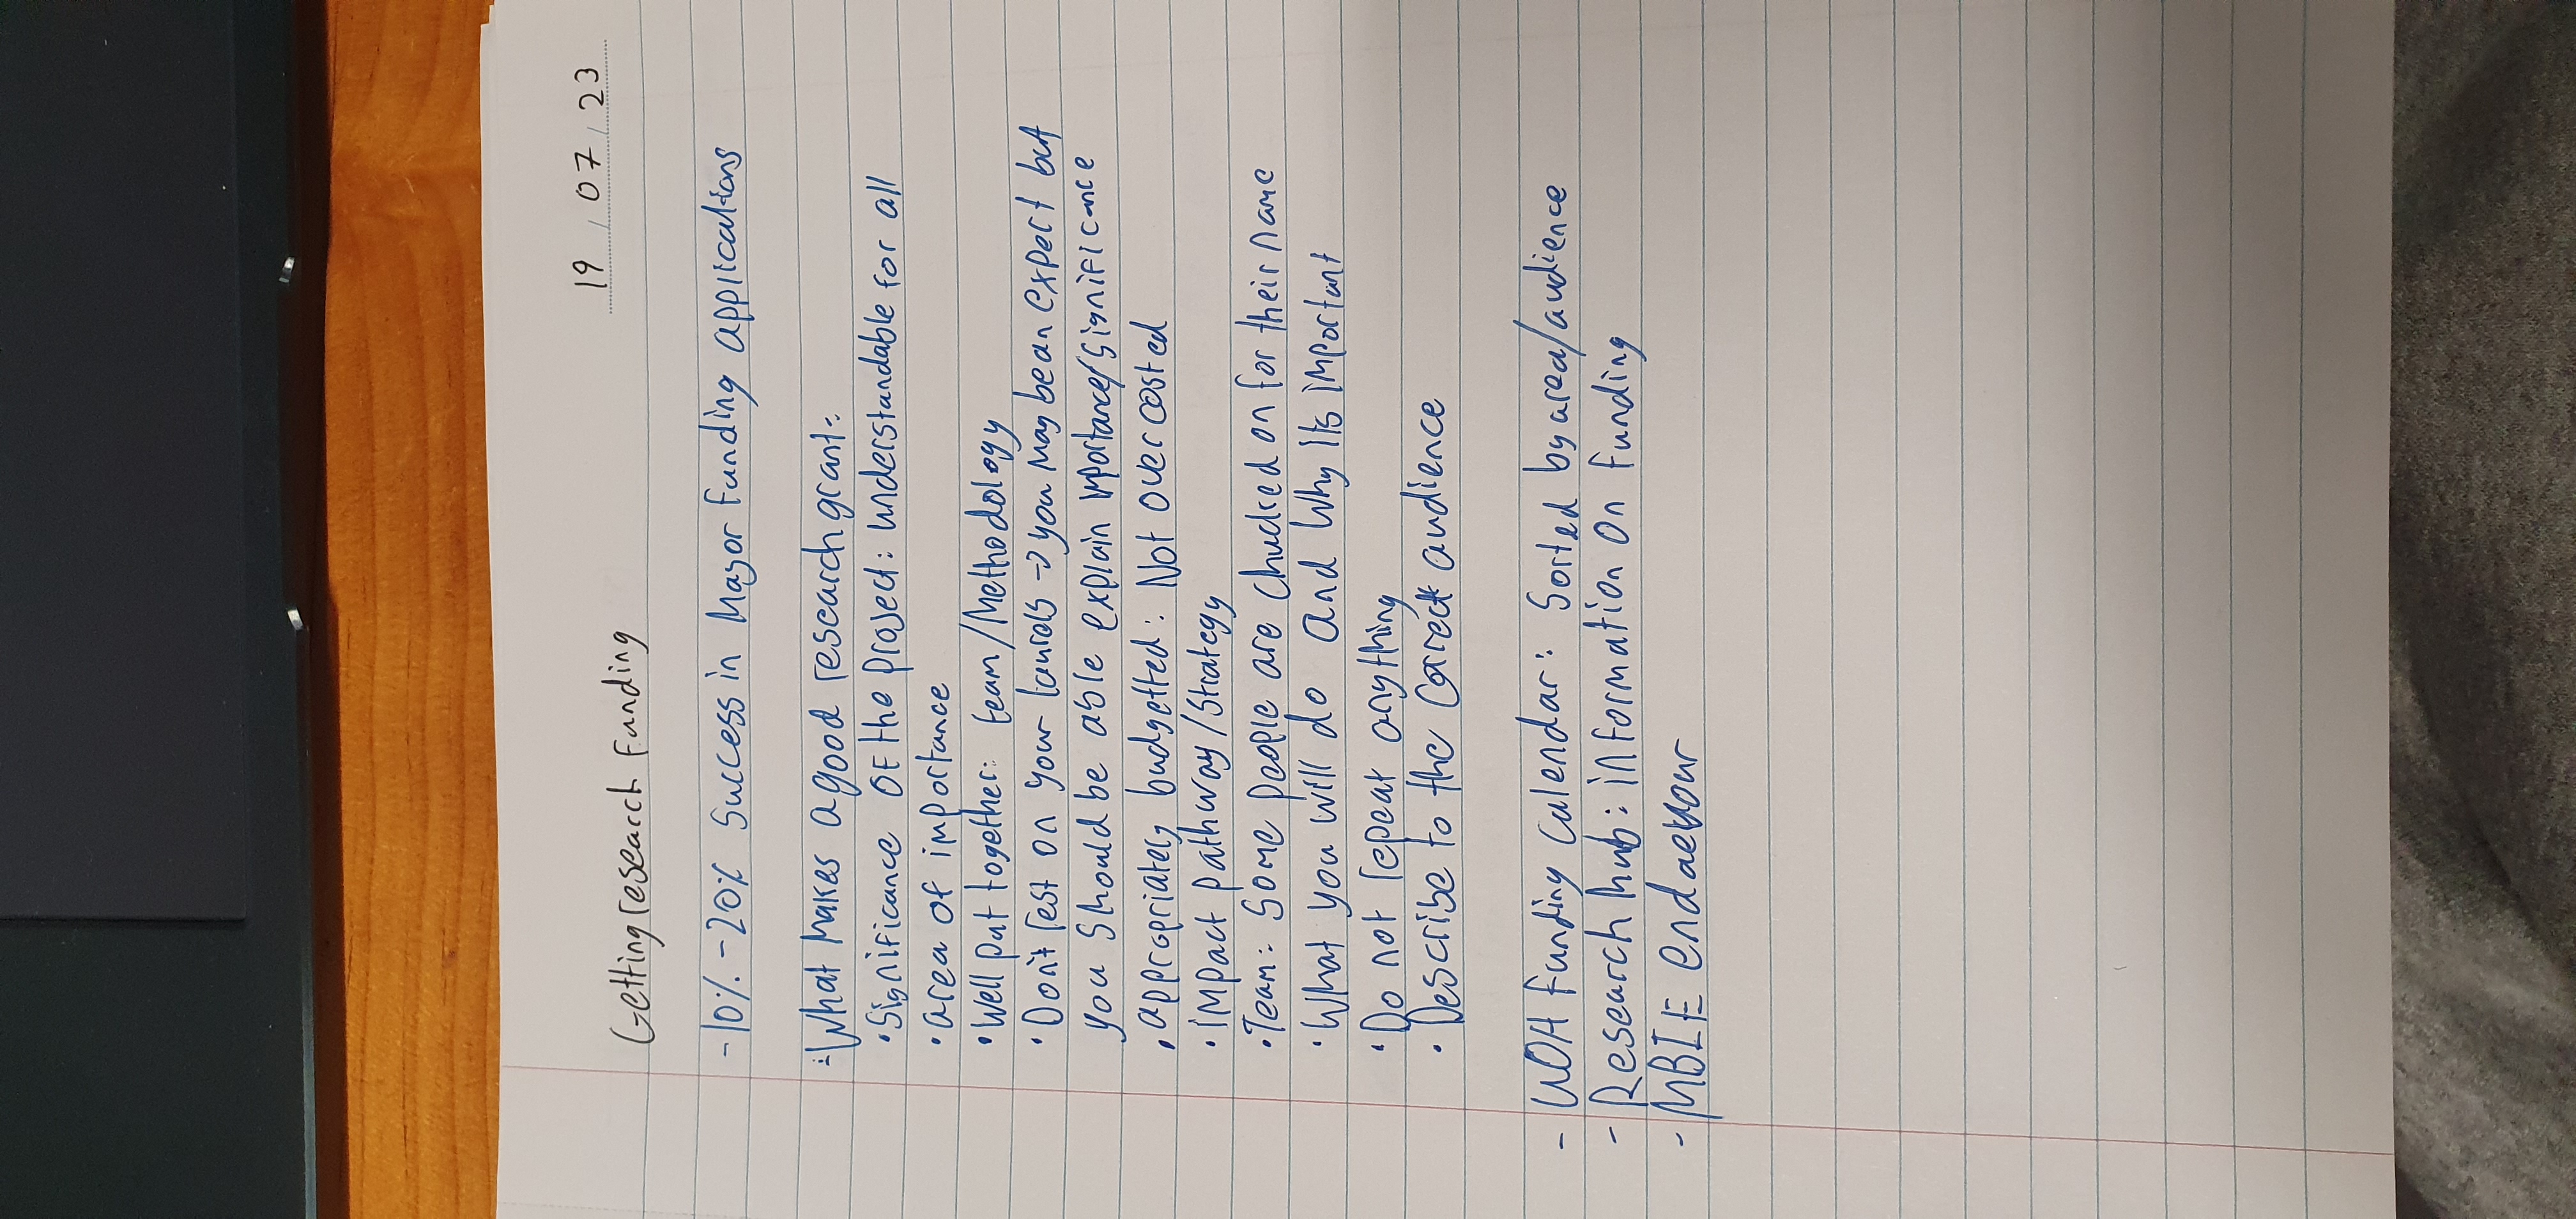 19 / 07 / 23
Getting research Funding
- 10% - 20% Success in Mayor funding applications
What Makes a good research grant:
• Significance OF the project: understandable for all
• area of importance
• Well put together: team/Methodology
• Don't rest on your laurels → you may be an expert but
you should be able explain importance/significance
• appropriately budgetted: Not over costed
• impact pathway/strategy
• Team: Some people are chucked on for their name
• What you will do and Why its important
• Do not repeat anything
• Describe to the correct audience
- UOA Funding calendar: Sorted by area/audience
- Research hub: information on funding
- MBIE endaevour